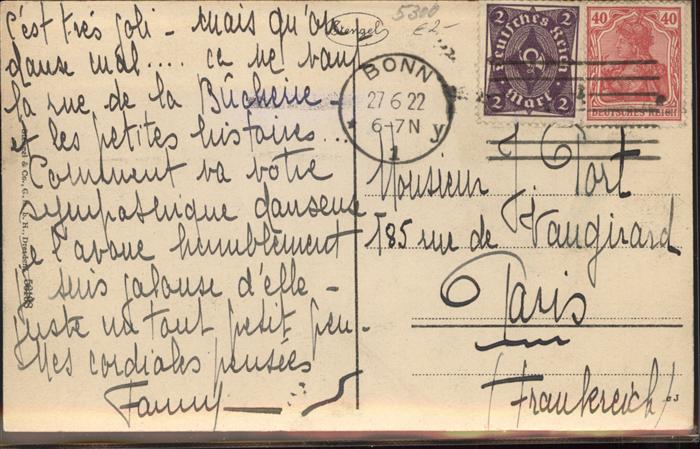 c'est très joli – mais qu'on
danse mal.... ça ne vaut
la rue de la Bûcherie –
et les petites histoires...
Comment va votre
sympathique danseuse
je l'avoue humblement
suis jalouse d'elle –
juste un tout petit peu –
Mes cordiales pensées
Fanny
Stengel
5300
£2-
BONN
27 6 22
6-7 N
1 y
2 Deutsches Reich 2
2
2 Mark 2
40 40
DEUTSCHES REICH
Monsieur J. Port
185 rue de Vaugirard
Paris
(Frankreich)
Stengel & Co., G. m. b. H., Dresden